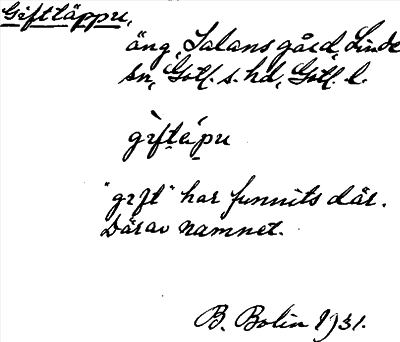 Giftläppu,
äng, Salans gård, Linde
sn, Gotl. s. hd, Gotl. l.
giftläpu
"gift" har funnits där.
Därav namnet.
B. Bolin 1931.